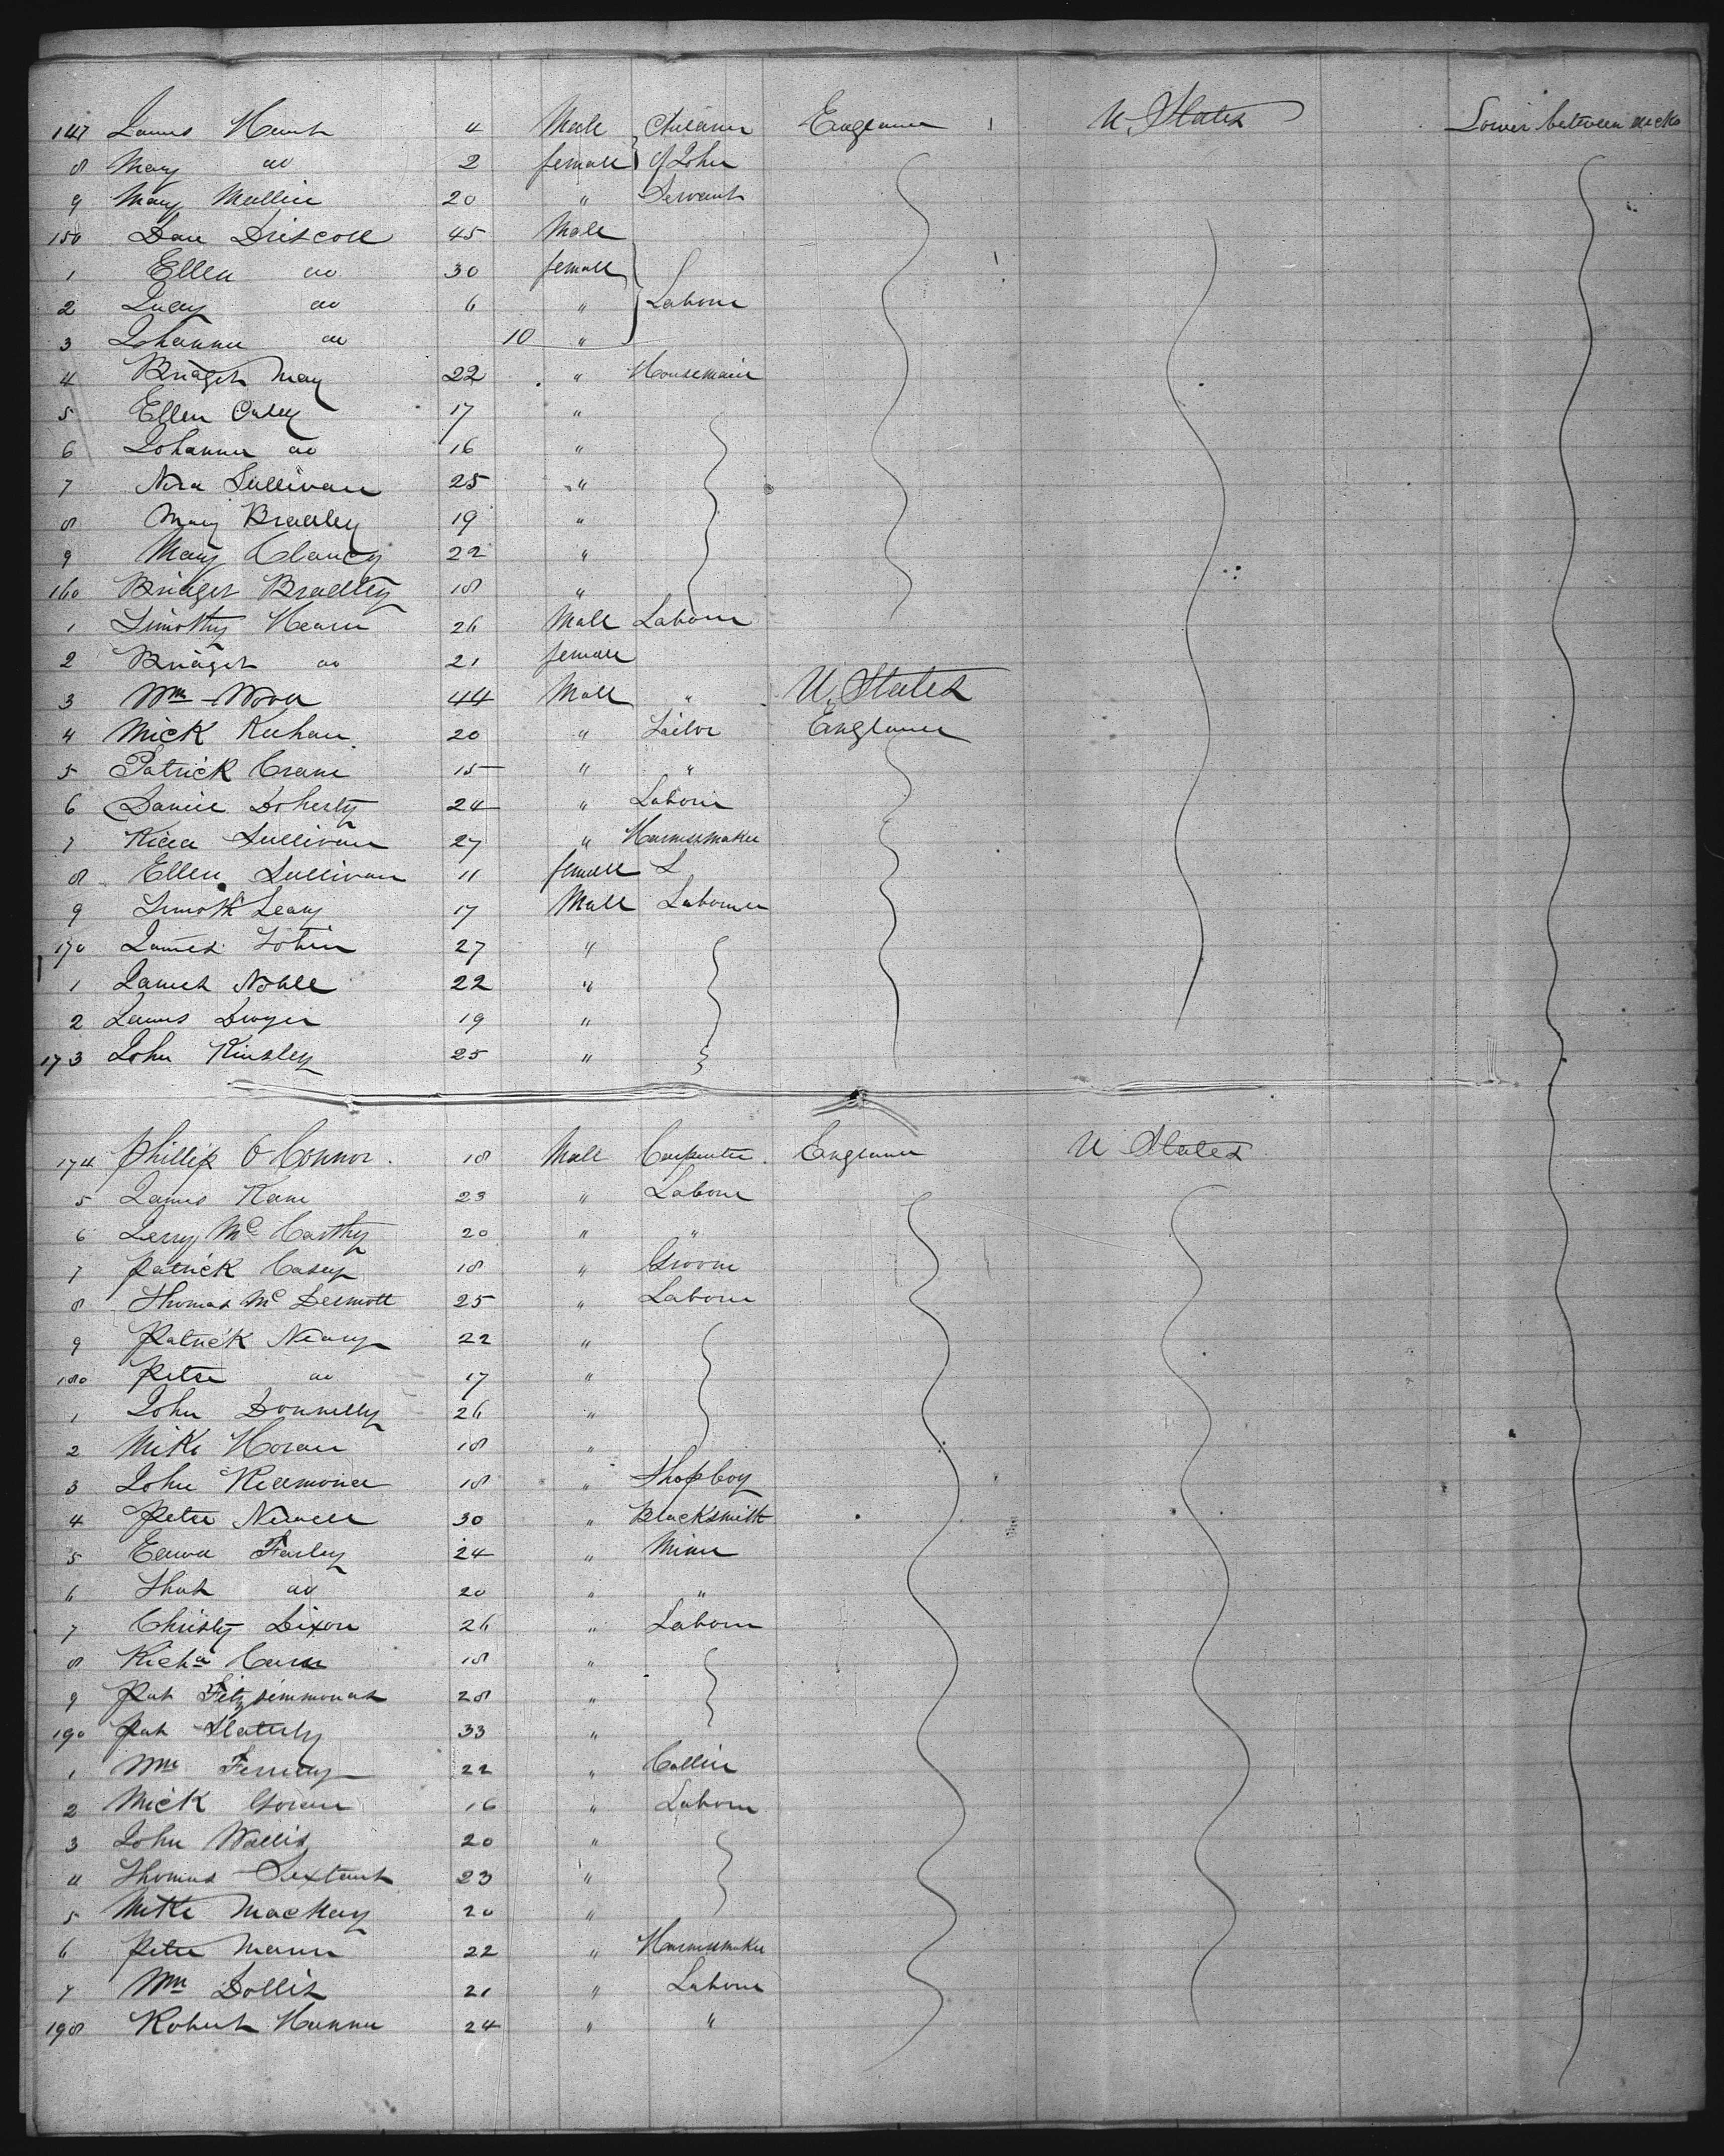 147 James Hunt 4 Male Children England U. States Lower between decks
8 Mary do 2 female of John
9 Mary Mullin 20 " Servant
150 Dan Driscoll 45 Male
1 Ellen do 30 female
2 Judy do 6 " Labour
3 Johanna do 10 "
4 Bridget May 22 " Housemaid
5 Ellen Casey 17 "
6 Johanna do 16 "
7 Nora Sullivan 25 "
8 Mary Bradley 19 "
9 Mary Clancy 22 "
160 Bridget Bradley 18 "
1 Timothy Hearn 26 Male Labour
2 Bridget do 21 female
3 Wm Wood 44 Male " U. States
4 Mick Keehan 20 " Tailor England
5 Patrick Crane 15 " "
6 Daniel Doherty 24 " Labour
7 Sullivan 27 " Harnessmaker
8 Ellen Sullivan 11 female
9 Timoth Leary 17 Male Labourer
170 James Tobin 27 "
1 James Noble 22 "
2 James Dwyer 19 "
173 John Kinsley 25 "
174 Phillip O Connor 18 Male Carpenter England U States
5 James Kane 23 " Labour
6 Jerry Mc Carthy 20 " "
7 Patrick Casey 18 " Groom
8 Thomas Mc Dermott 25 " Labour
9 Patrick Neary 22 "
180 Peter do 17 "
1 John Donnelly 26 "
2 Mike Horan 18 "
3 John Redmond 18 " Shopboy
4 Peter Newell 30 " Blacksmith
5 Edwd Farley 24 " Miner
6 Thos do 20 " "
7 Christy Dixon 26 " Labour
8 Richd 18 "
9 Pat Fitzsimmons 28 "
190 Pat Slatterly 33 "
1 Wm 22 " Collier
2 Mick Goran 16 " Labour
3 John Wallis 20 "
4 Thomas Sextant 23 "
5 Mike Mackay 20 "
6 Peter Mann 22 " Harnessmaker
7 Wm Dollis 21 " Labour
198 Robert Hanna 24 " "